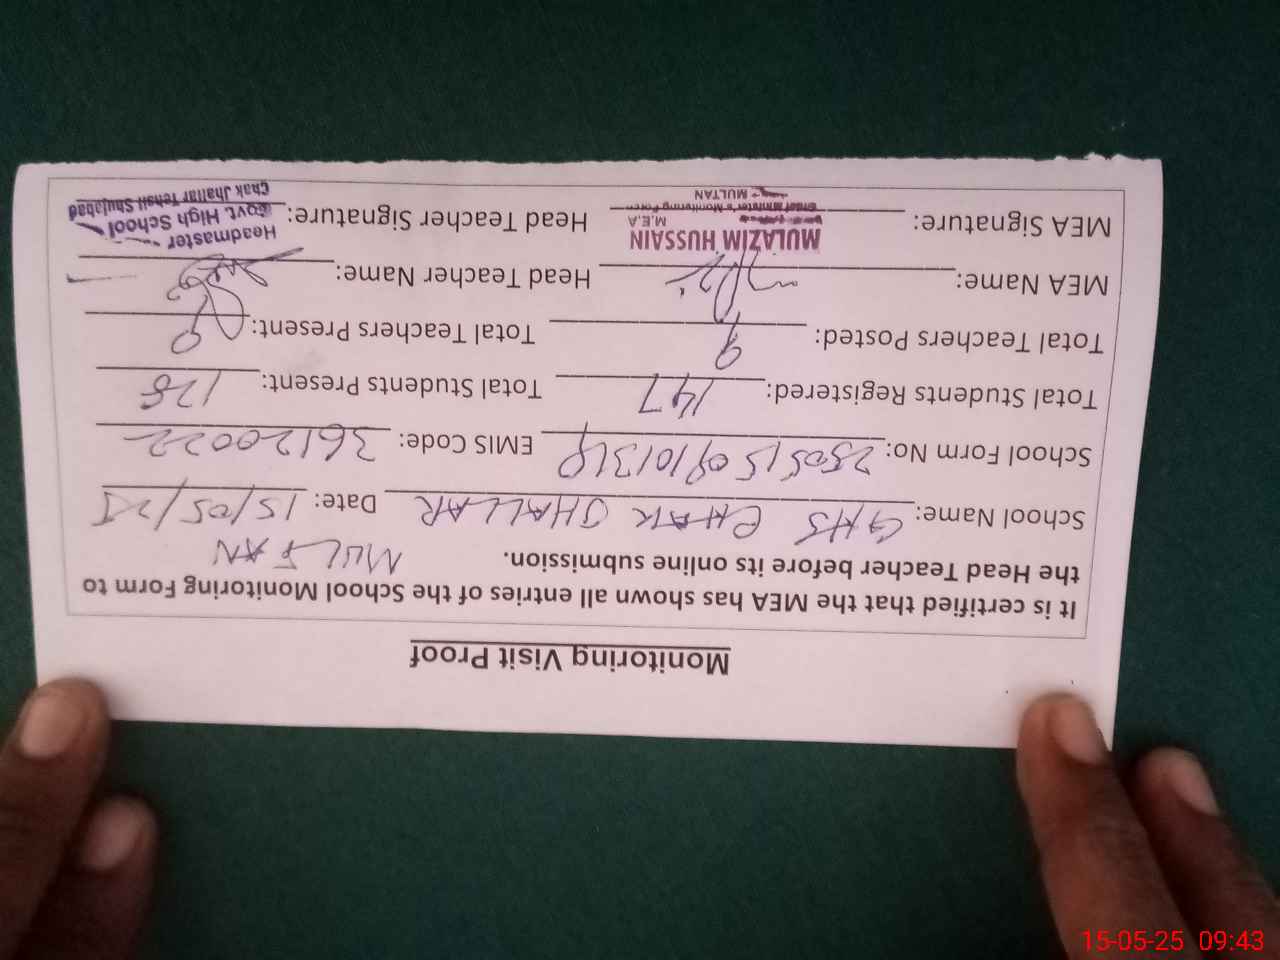 Monitoring Visit Proof
It is certified that the MEA has shown all entries of the School Monitoring Form to
the Head Teacher before its online submission. MULTAN
School Name: GHS CHAK JHALLAR Date: 15/05/25
School Form No: EMIS Code: 36120022
Total Students Registered: 147 Total Students Present: 128
Total Teachers Posted: 9 Total Teachers Present: 9
MEA Name: Head Teacher Name:
MEA Signature: MULAZIM HUSSAIN Head Teacher Signature: Headmaster
M.E.A Govt. High School
Chief Minister's Monitoring Force Chak Jhallar Tehsil Shujabad
MULTAN
15-05-25 09:43